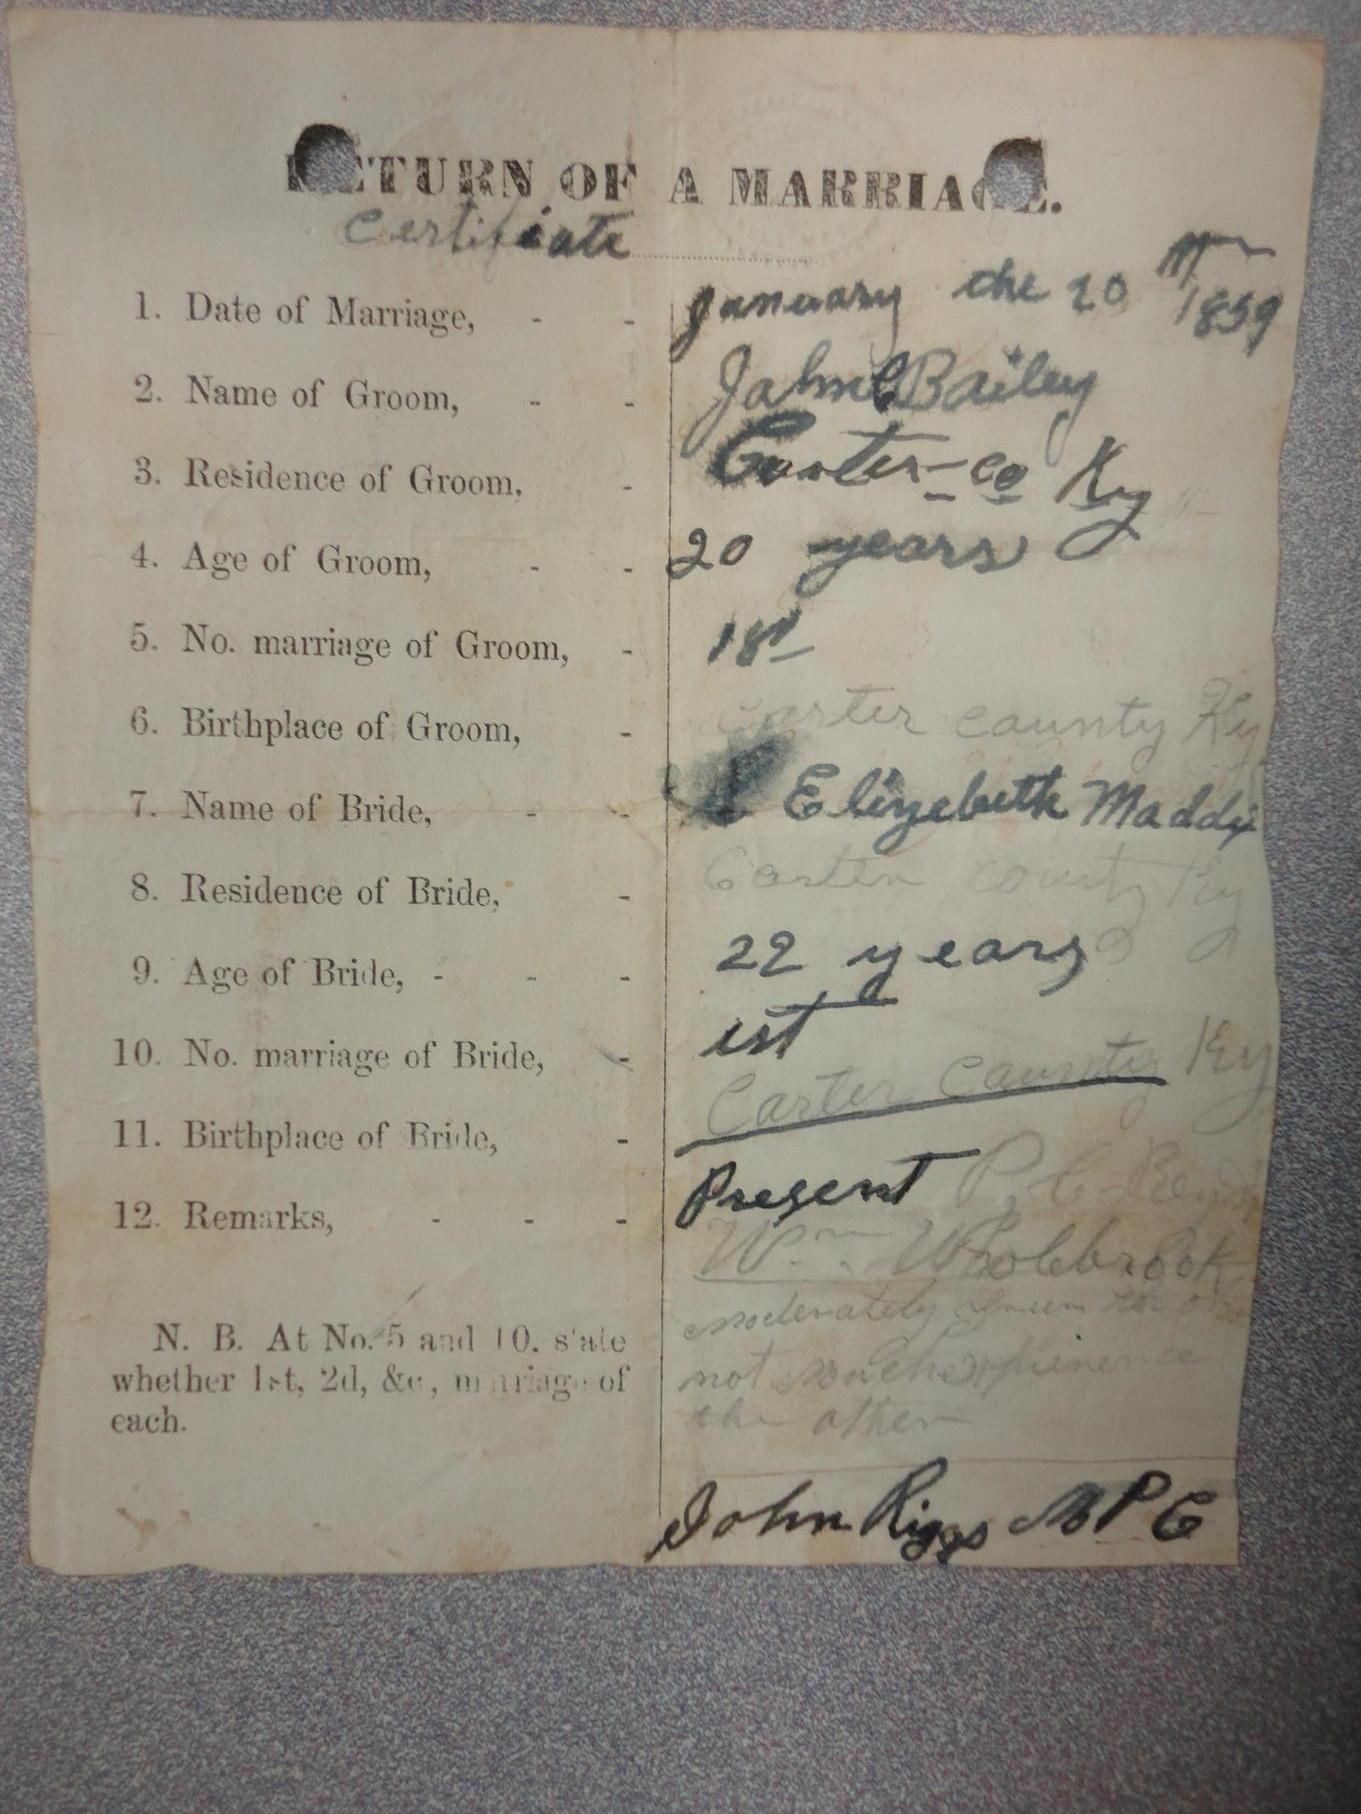 RETURN OF A MARRIAGE.
Certificate
1. Date of Marriage, - - January the 20th 1859
2. Name of Groom, - - John C Bailey
3. Residence of Groom, - Carter co Ky
4. Age of Groom, - - 20 years
5. No. marriage of Groom, - 1st
6. Birthplace of Groom, - Carter county Ky
7. Name of Bride, - - Elizebeth Maddix
8. Residence of Bride, - Carter county Ky
9. Age of Bride, - - - 22 years
10. No. marriage of Bride, - 1st
11. Birthplace of Bride, - Carter county Ky
12. Remarks, - - - Present P. C.
Wm
moderately
N. B. At No. 5 and 10. state
whether 1st, 2d, &c, marriage of
each.
not
the other
John Riggs M P C